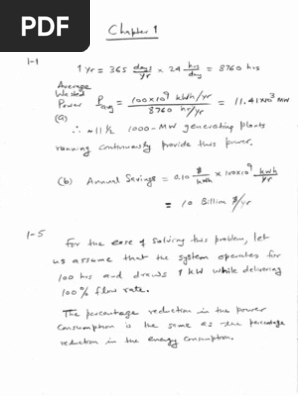 PDF
Chapter 1
1-1
1 Yr = 365 days/yr × 24 hrs/day = 8760 hrs
Average
Wasted
Power P_avg = 100×10^9 kWh/yr / 8760 hr/yr = 11.41×10^3 MW
(a)
∴ ≈ 11 1/2 1000-MW generating plants
running continuously provide this power.
(b) Annual Savings = 0.10 $/kWh × 100×10^9 kWh/yr
= 10 Billion $/yr
1-5
For the ease of solving this problem, let
us assume that the system operates for
100 hrs and draws 1 kW while delivering
100% flow rate.
The percentage reduction in the power
consumption is the same as the percentage
reduction in the energy consumption.